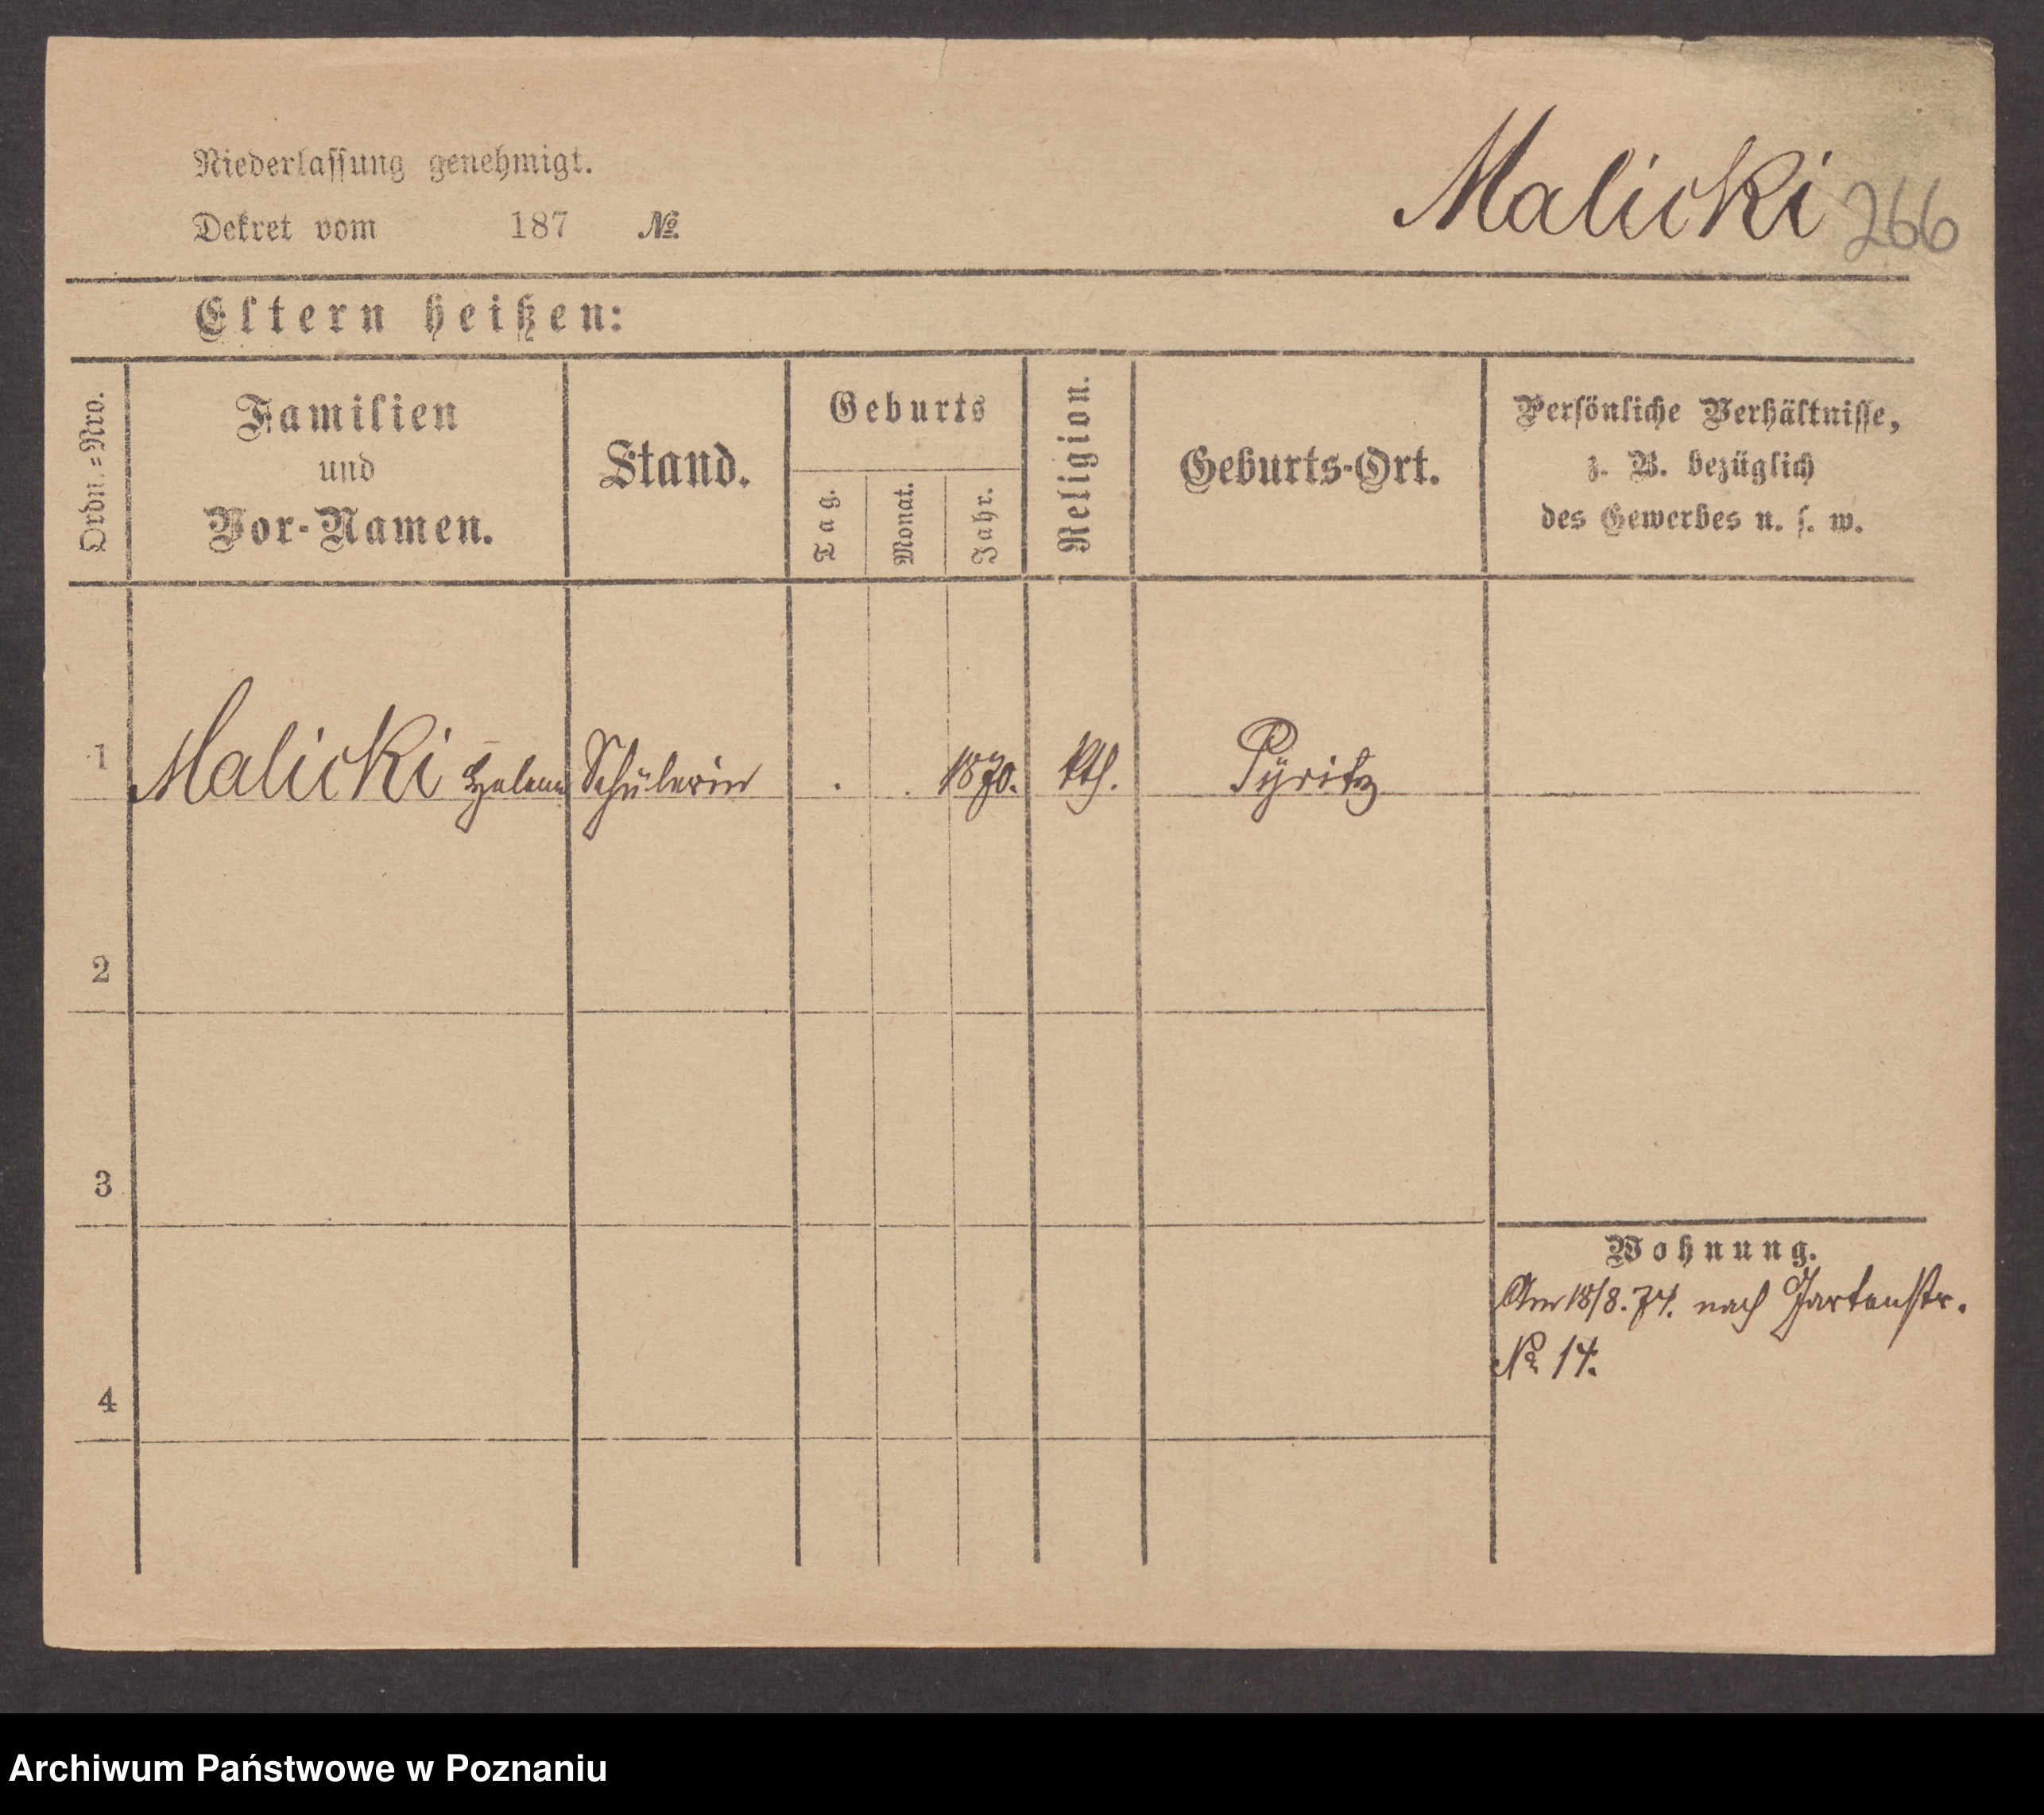 Malicki 266
Niederlassung genehmigt.
Dekret vom 187 №
Eltern heißen:
Ordn.=Nro.
Familien
und
Vor-Namen.
Stand.
Geburts
Tag.
Monat.
Jahr.
Religion.
Geburts-Ort.
Persönliche Verhältnisse,
z. B. bezüglich
des Gewerbes u. s. w.
1 Malicki Helena Schülerin . . 1870. kth. Pyritz
2
3
Wohnung.
Am 18/8. 74. nach Gartenstr.
№ 14.
4
Archiwum Państwowe w Poznaniu